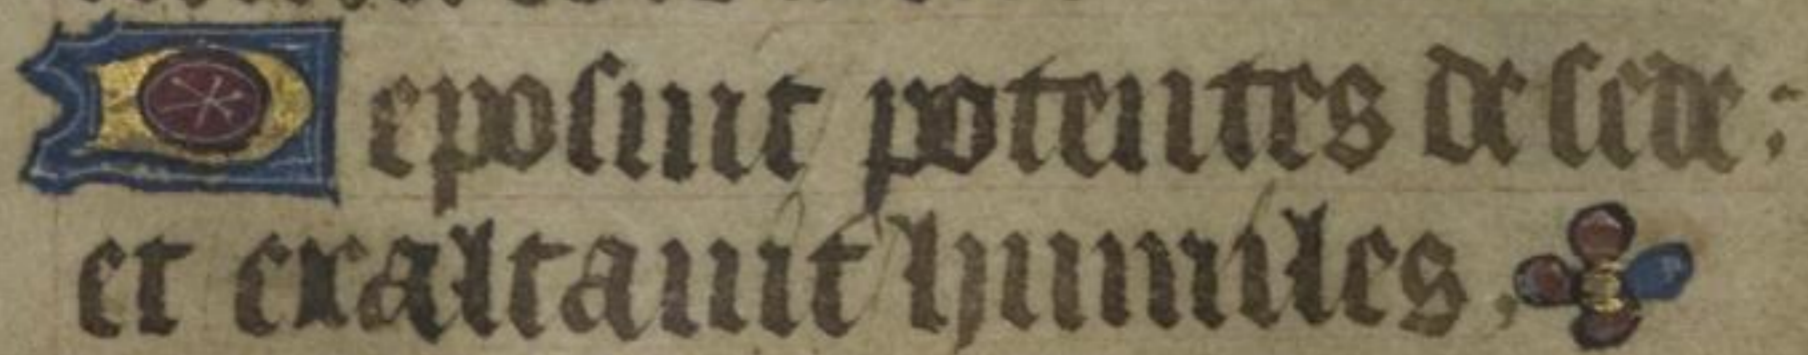 Deposuit potentes de sede:
et exaltauit humiles.